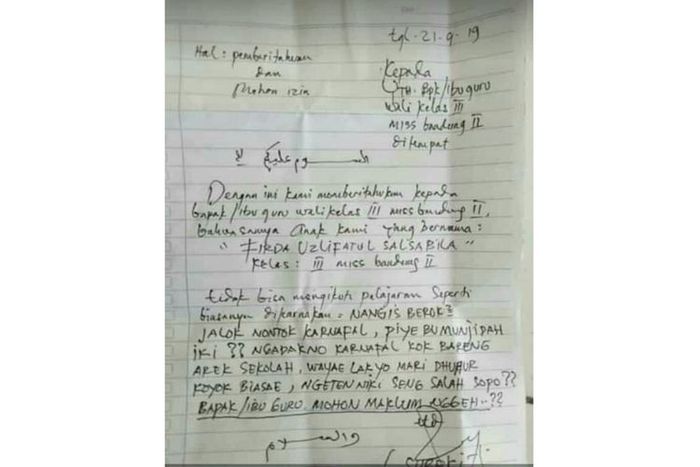 tgl. 21-9-19
Hal : pemberitahuan
dan
Mohon izin
Kepada
YTH. Bpk/ibu guru
wali kelas III
MISS bandung II
ditempat
السلام عليكم
Dengan ini kami memberitahukan kepada
bapak/ibu guru wali kelas III miss bandung II,
bahwasannya anak kami yang bernama :
" FIRDA UZLIFATUL SALSABILA "
kelas : III miss bandung II
tidak bisa mengikuti pelajaran seperti
biasanya dikarnakan = NANGIS BEROK2
JALOK NONTOK KARNAFAL, PIYE BU MUNJIDAH
IKI ?? NGADAKNO KARNAFAL KOK BARENG
AREK SEKOLAH, WAYAE LAK YO MARI DHUHUR
KOYOK BIASAE, NGETEN NIKI SENG SALAH SOPO ??
BAPAK/IBU GURU MOHON MAKLUM NGGEH..??
ttd
والسلام